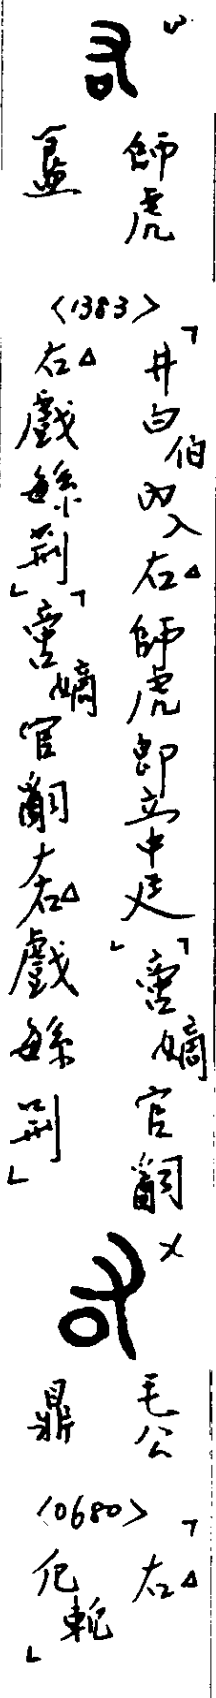 師虎
簋
<1383>
「井白伯內入右△師虎即立中廷」「啻嫡官𤔲
右△戲緐荊」「啻嫡官𤔲左右△戲緐荊」
毛公
鼎
<0680>
「右△
厄軛」